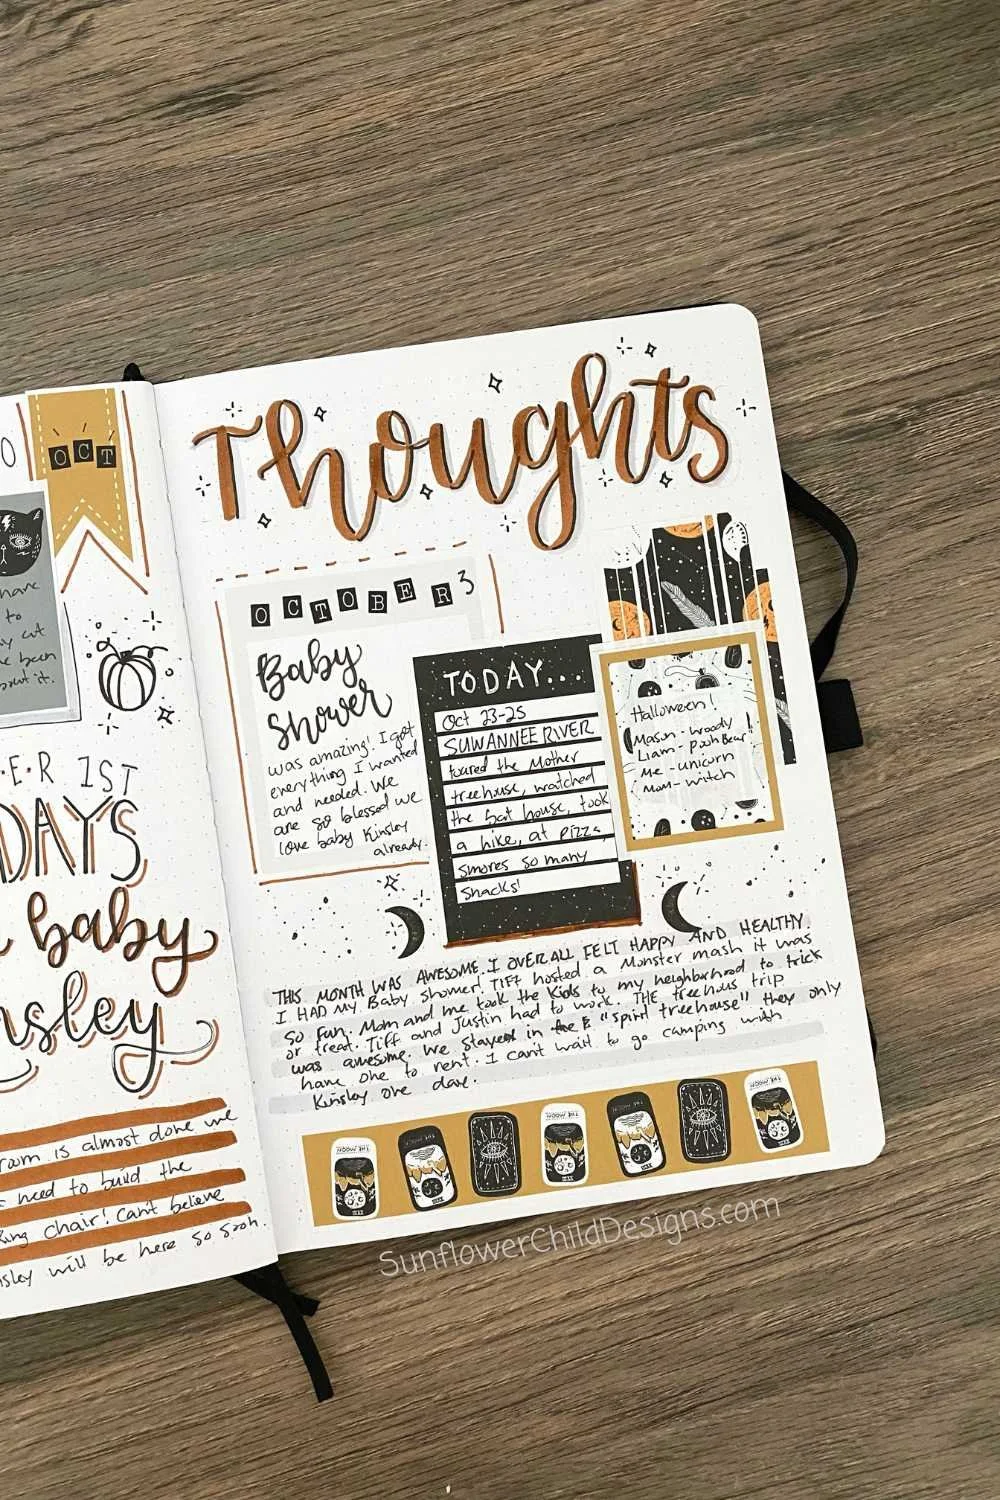 O
OCT
have
to
cut
been
about it.
E·R 1ST
DAYS
baby
nsley
room is almost done we
need to build the
king chair! Can't believe
nsley will be here so soon.
Thoughts
OCTOBER 3
Baby
Shower
was amazing! I got
everything I wanted
and needed. We
are so blessed we
love baby Kinsley
already.
TODAY...
Oct 23-25
SUWANNEE RIVER
toured the Mother
treehouse, watched
the bat house, took
a hike, at pizza
smores so many
snacks!
Halloween!
Mason - woody
Liam - pooh Bear!
Me - unicorn
Mom - witch
THIS MONTH WAS AWESOME. I OVERALL FELT HAPPY AND HEALTHY.
I HAD MY Baby shower! Tiff hosted a Monster mash it was
so fun. Mom and me took the kids to my neighborhood to trick
or treat. Tiff and Justin had to work. THE treehous trip
was awesome. We stayed in the "spirit treehouse" they only
have one to rent. I can't wait to go camping with
Kinsley one day.
THE MOON
THE MOON
THE MOON
THE MOON
THE MOON
SunflowerChildDesigns.com